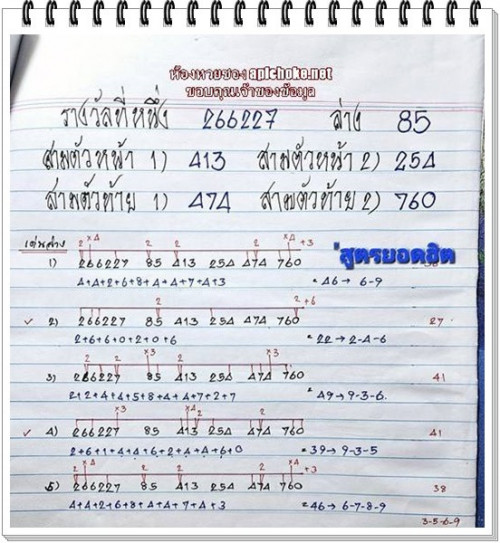 ห้องหวยของ apichoke.net
ขอบคุณเจ้าของข้อมูล
รางวัลที่หนึ่ง 266227 ล่าง 85
สามตัวหน้า 1) 413 สามตัวหน้า 2) 254
สามตัวท้าย 1) 474 สามตัวท้าย 2) 760
เด่นล่าง 2 x4 2 2 x4 +3
1) 266227 85 413 254 474 760 สูตรยอดฮิต
4+4+2+6+8+4+4+7+4+3 = 46 → 6-9
2 2 2+6
✓ 2) 266227 85 413 254 474 760 27
2+6+6+0+2+0+6 = 22 → 2-4-6
2 2 x3 2 x3
3) 266227 85 413 254 474 760 41
2+2+4+4+5+8+4+4+7+2+7 = 49 → 9-3-6
x3 2 x3 2 2
✓ 4) 266227 85 413 254 474 760 41
2+6+1+4+4+6+2+4+4+6+0 = 39 → 9-3-5
2 x4 2 2 +3
5) 266227 85 413 254 474 760 38
4+4+2+6+8+4+4+7+4+3 = 46 → 6-7-8-9
3-5-6-9